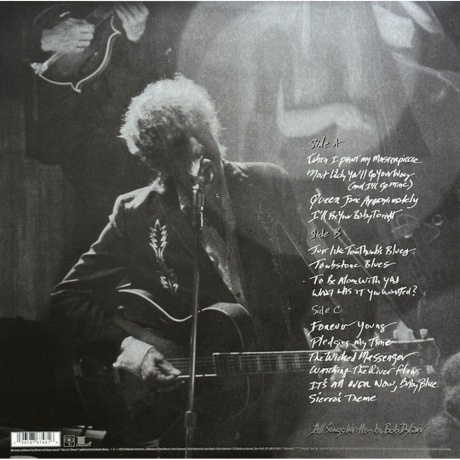 Side A
When I paint my Masterpiece
Most Likely You'll Go Your Way
(and I'll Go Mine)
Queen Jane Approximately
I'll Be Your Baby Tonight
Side B
Just like Tom Thumb's Blues
Tombstone Blues
To Be Alone With You
What Was it you Wanted?
Side C
Forever Young
Pledging my Time
The Wicked Messenger
Watching The River Flow
IT'S All OVER NOW, Baby Blue
Sierra's Theme
All Songs Written by Bob Dylan